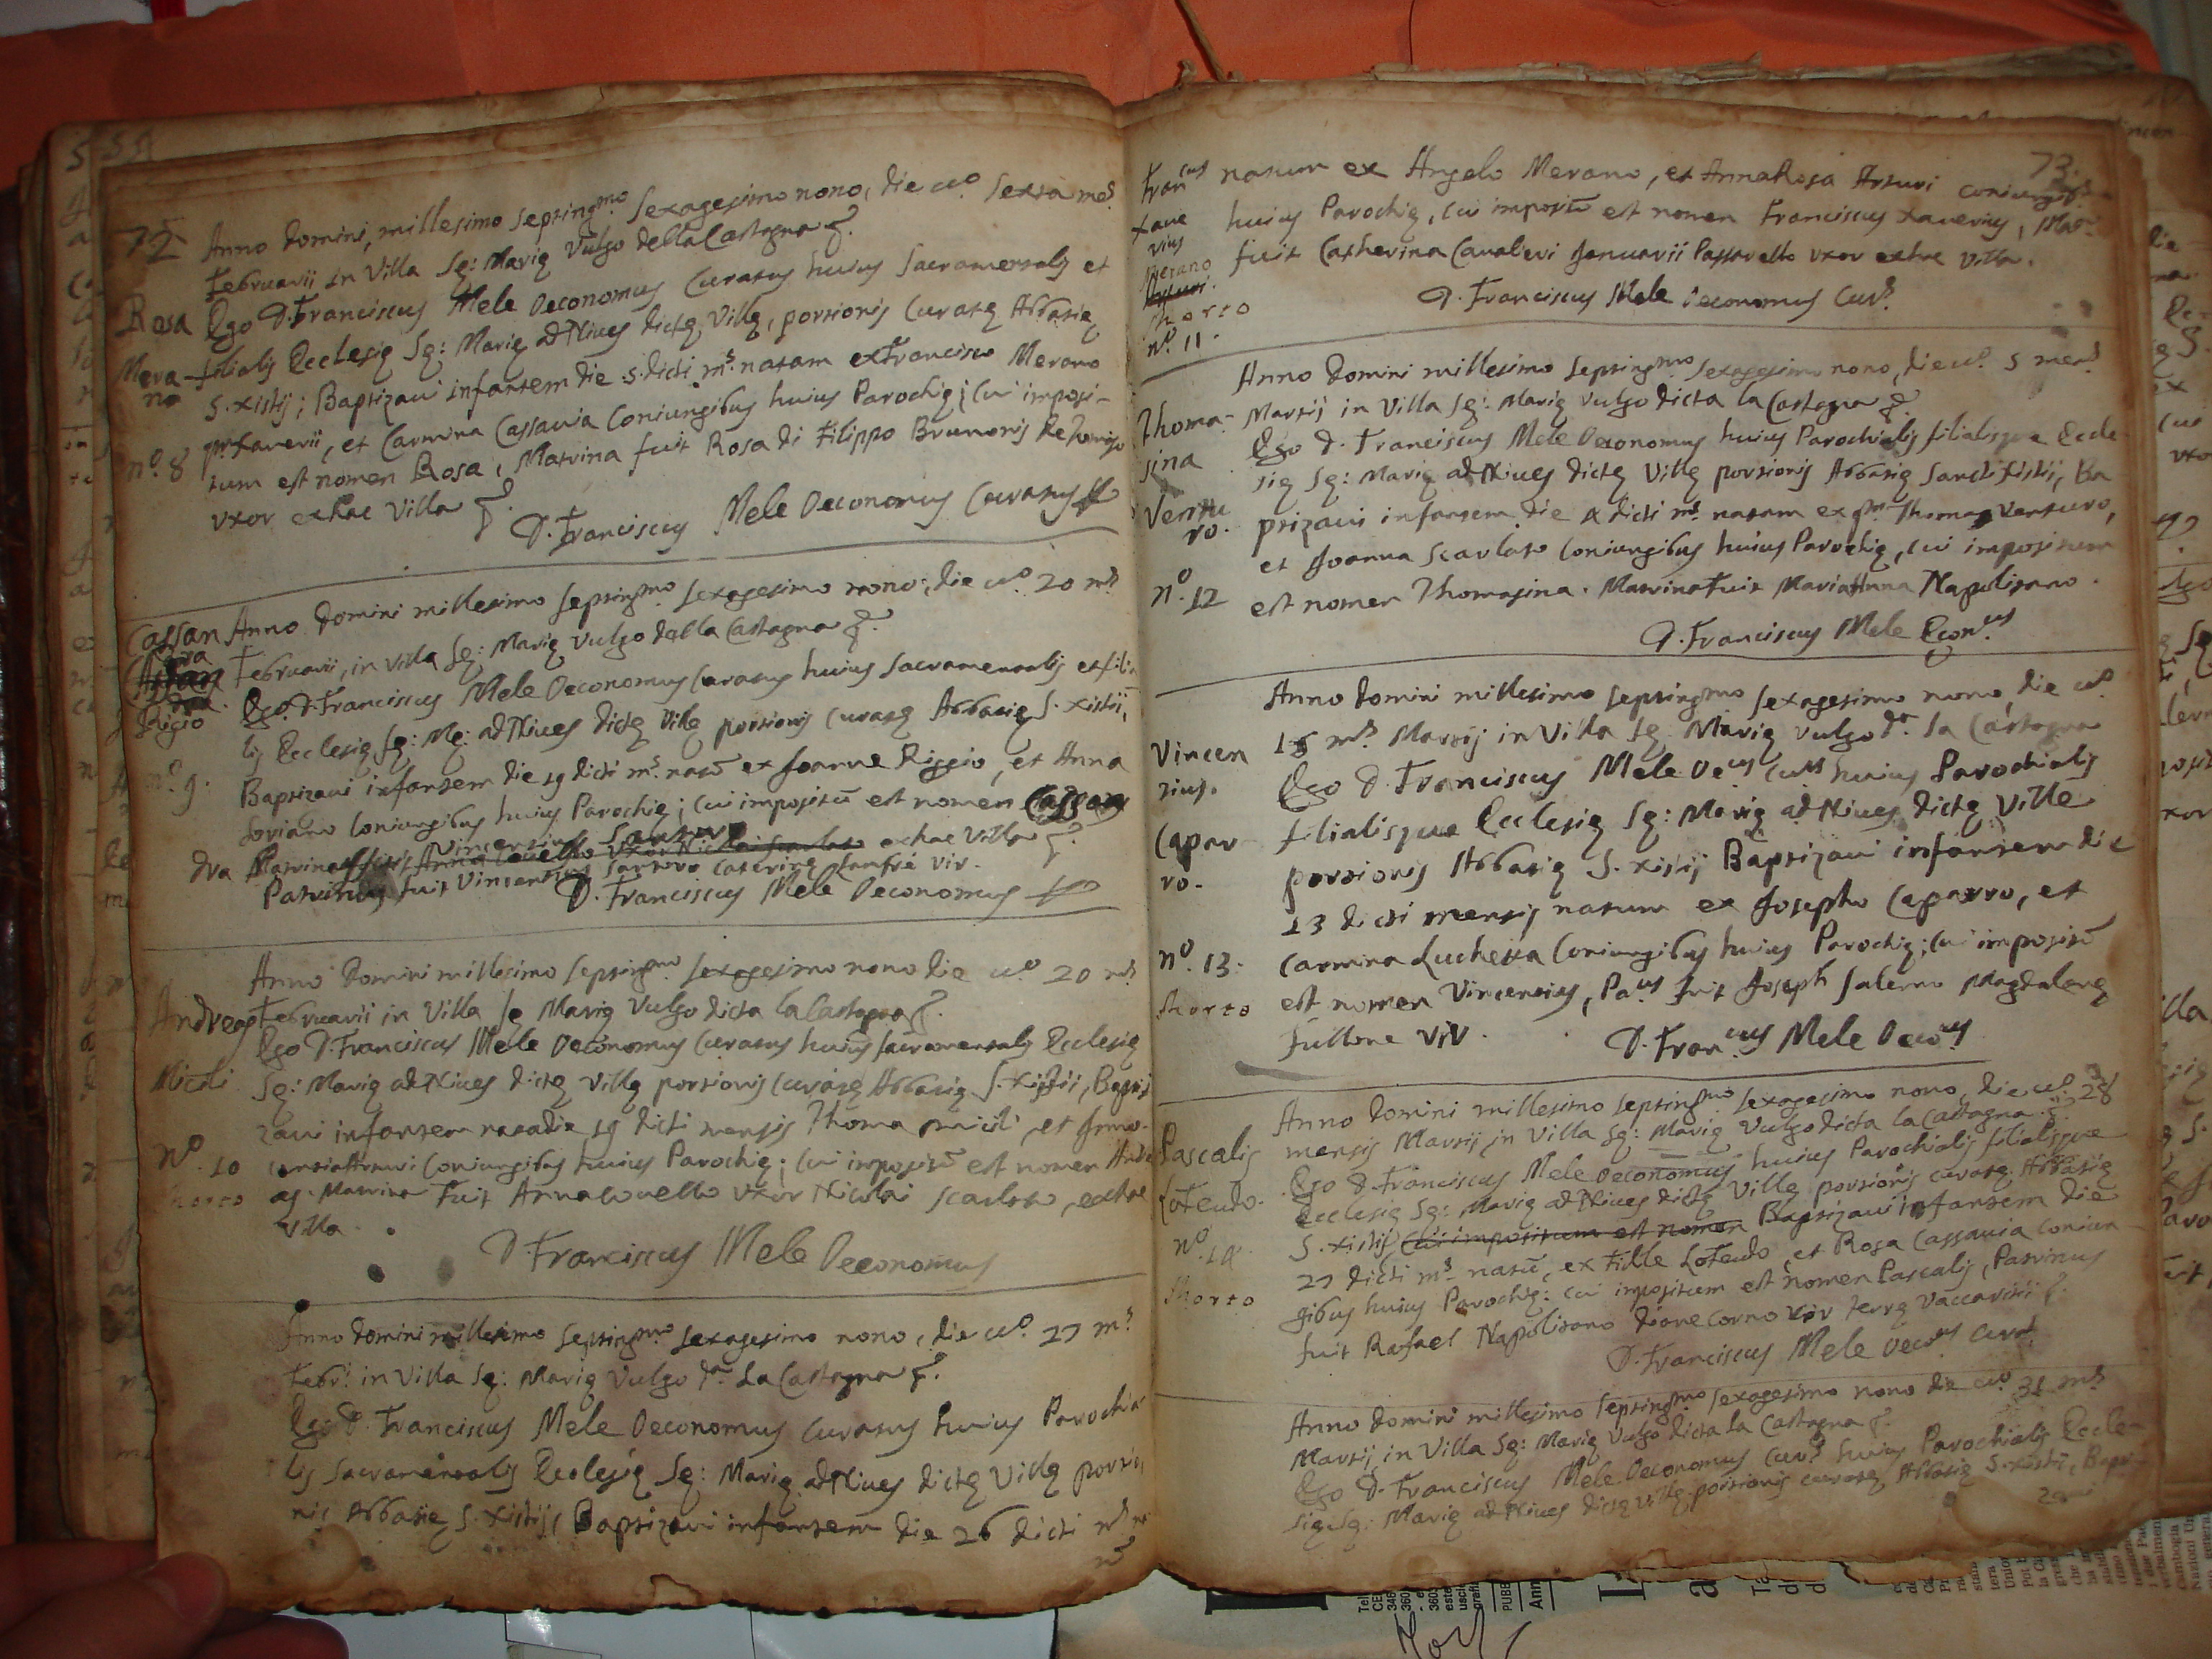 72
Anno Domini, millesimo septingmo sexagesimo nono, die uo sexta mes
Februarii in Villa Sę: Marię Vulgo della Castagna
Rosa
Ego D. Franciscus Mele Oeconomus Curatus huius Sacramentalis et
Mera
no
filialis Ecclesię Sę: Marię ad Nives dictę Villę, portionis Curatę Abbatię
S. Xistij; Baptizavi infantem die 5 dicti ms. natam ex Francisco Merano
qm Xaverii, et Carmina Cassavia Coniungibus huius Parochię; Cui imposi-
no. 8
tum est nomen Rosa, Matrina fuit Rosa di Filippo Brunoris
uxor ex hac Villa
D. Franciscus Mele Oeconomus Curatus
Cassan
dra
Rigio
no. 9.
Anno Domini millesimo septingmo sexagesimo nono, die uo. 20 ms
Februarii, in Villa Sę: Marię Vulgo della Castagna
Ego D. Franciscus Mele Oeconomus Curatus huius Sacramentalis et filia
lis Ecclesię Sę: Mę: ad Nives dictę Villę portionis Curatę Abbatię S. Xistii,
Baptizavi infantem die 19 dicti ms. natā ex Joanne Riggio, et Anna
Soriano Coniungibus huius Parochię; Cui impositū est nomen Cassan
dra Matrina fuit Anna Covello uxor Nicolai Scarlato ex hac Villa
Vincentius Santoro
Patrinus fuit Vincentius Santoro Caterinę vir.
D. Franciscus Mele Oeconomus
Andreas
Miceli
No. 10
Anno Domini millesimo septingmo sexagesimo nono die uo 20 ms
Februarii in Villa Sę Marię Vulgo dicta la Castagna
Ego D. Franciscus Mele Oeconomus Curatus huius Sacramentalis Ecclesię
Sę: Marię ad Nives dictę Villę portionis Curatę Abbatię S. Xistii, Bapti
zavi infantem nata die 19 dicti mensis Thoma Miceli, et Inno-
Coniungibus huius Parochię; Cui impositū est nomen Andre
as. Matrina fuit Anna Covello uxor Nicolai Scarlato, ex hac
Villa.
D. Franciscus Mele Oeconomus
Anno Domini millesimo septingmo sexagesimo nono, die uo. 27 ms
Febri: in Villa Sę: Marię Vulgo da La Castagna
Ego D. Franciscus Mele Oeconomus Curatus huius Parochia
lis Sacramentalis Ecclesię Sę: Marię ad Nives dictę Villę portio
nis Abbatię S. Xistij, Baptizavi infantem die 26 dicti ms
73.
Francus
Xave
rius
Merano
Morto
no. 11.
natum ex Angelo Merano, et AnnaRosa Arturi coniungibs
huius Parochię, Cui impositū est nomen Franciscus Xaverius, Mat
fuit Catherina Cavalieri Januarii Passarello uxor ex hac Villa.
D. Franciscus Mele Oeconomus Curs
Thoma-
sina
Ventu
ro.
no. 12
Anno Domini millesimo septingmo sexagesimo nono, die uo. 5 mens
Martij in Villa Sę: Marię Vulgo dicta la Castagna
Ego D. Franciscus Mele Oeconomus huius Parochialis filialisque Eccle
się Sę: Marię ad Nives dictę Villę portionis Abbatię Sancti Xistij, Ba
ptizavi infantem die 4 dicti ms. natam ex qm Thoma Venturo,
et Joanna Scarlato Coniungibus huius Parochię, Cui impositum
est nomen Thomasina. Matrina fuit MariaAnna Napolitano.
D. Franciscus Mele Econus
Vincen
tius.
Capar
ro.
no. 13.
Morto
Anno Domini millesimo septingmo sexagesimo nono, die uo.
ms Martij in Villa Sę Marię Vulgo da la Castagna
Ego D. Franciscus Mele Oecus Curs huius Parochialis
filialisque Ecclesię Sę: Marię ad Nives dictę Villę
portionis Abbatię S. Xistij Baptizavi infantem die
13 dicti mensis natum ex Josepho Caparro, et
Carmina Luchetta Coniungibus huius Parochię; Cui impositū
est nomen Vincentius, Paus fuit Joseph Salerno Magdalenę
Fullone vir.
D. Francus Mele Oecous
Pascalis
Lofeudo.
No. 14.
Morto
Anno Domini millesimo septingmo sexagesimo nono, die uo. 28
mensis Martij in Villa Sę: Marię Vulgo dicta la Castagna
Ego D. Franciscus Mele Oeconomus huius Parochialis filialisque
Ecclesię Sę: Marię ad Nives dictę Villę portionis curatę Abbatię
S. Xistij Cui impositum est nomen Baptizavi infantem die
27 dicti ms. natū, ex Fidele Lofeudo, et Rosa Cassavia Coniun
gibus huius Parochię: Cui impositum est nomen Pascalis, Patrinus
fuit Rafael Napolitano vir terrę Vaccaritii
D. Franciscus Mele Oecous Curs
Anno Domini millesimo septingmo sexagesimo nono die uo 31 ms
Martij in Villa Sę: Marię Vulgo dicta la Castagna
Ego D. Franciscus Mele Oeconomus Curs huius Parochialis Eccle-
się Sę: Marię ad Nives dictę Villę portionis curatę Abbatię S. Xistii, Bapti-
zavi